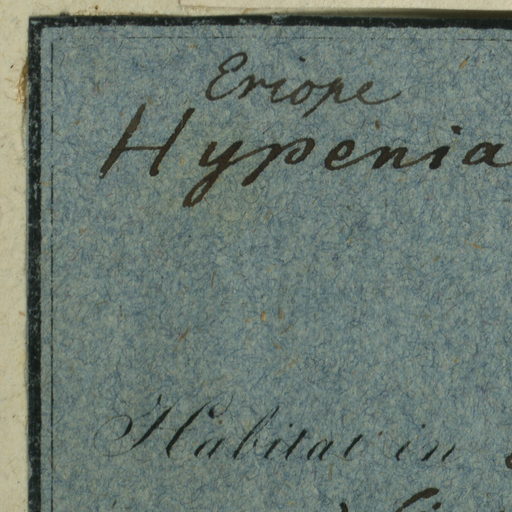 Eriope
Hypenia
Habitat in